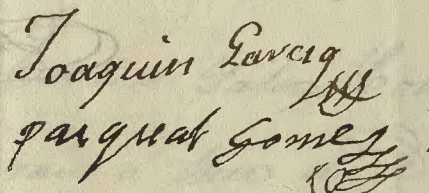 Joaquin Garcia
parqual Gomez